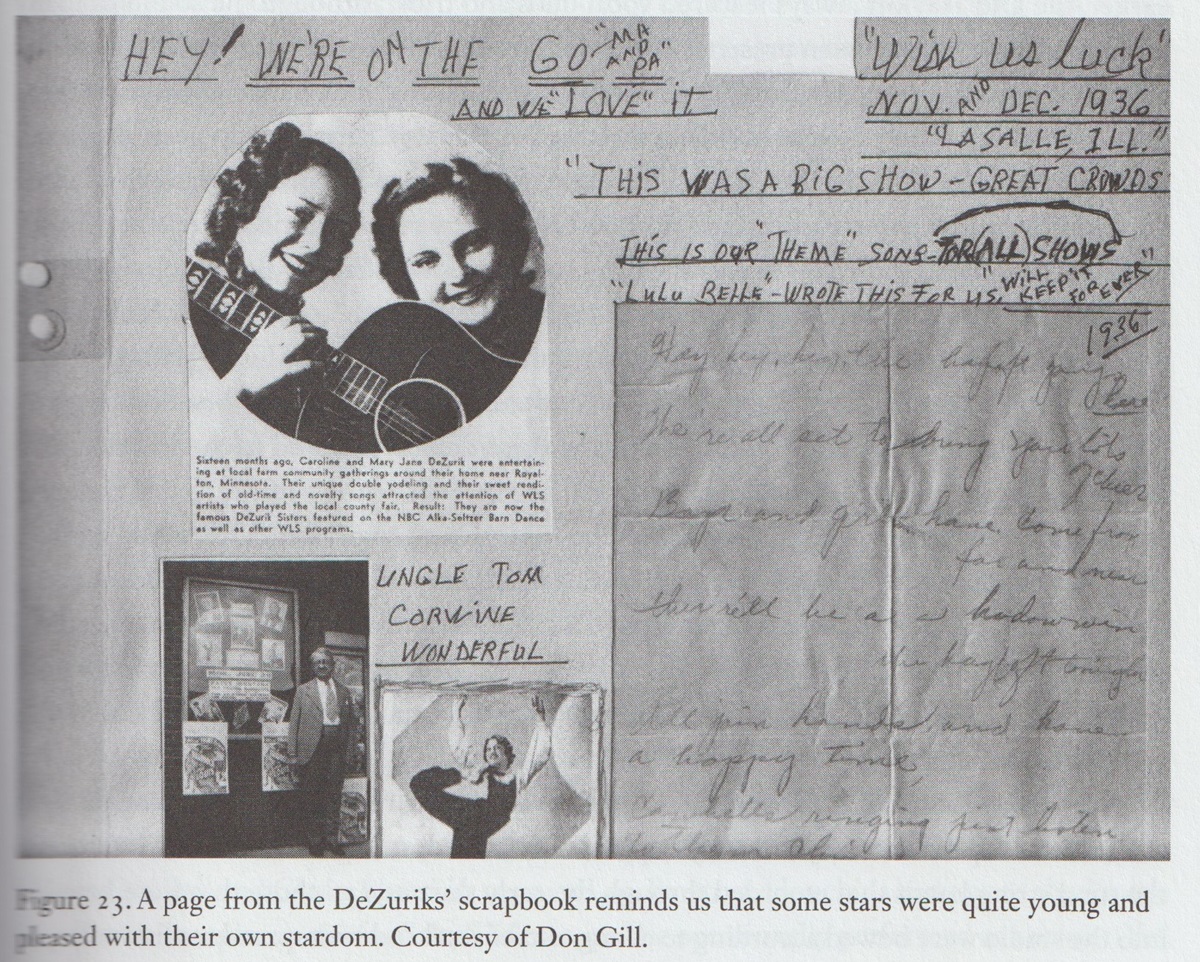 HEY! WE'RE ON THE GO "MA AND PA"
AND WE "LOVE" IT
"Wish us luck"
NOV. AND DEC. 1936
"LA SALLE, ILL."
"THIS WAS A BIG SHOW - GREAT CROWDS
THIS IS OUR "THEME" SONG - FOR (ALL) SHOWS
"LULU BELLE" - WROTE THIS FOR US, "WILL KEEP IT FOR EVER"
1936
Sixteen months ago, Caroline and Mary Jane DeZurik were entertain-
ing at local farm community gatherings around their home near Royal-
ton, Minnesota. Their unique double yodeling and their sweet rendi-
tion of old-time and novelty songs attracted the attention of WLS
artists who played the local county fair. Result: They are now the
famous DeZurik Sisters featured on the NBC Alka-Seltzer Barn Dance
as well as other WLS programs.
UNCLE TOM
CORWINE
WONDERFUL
Hey hey, hey, the
here
We're all set to bring you lots
cheer
Boys and girls have come from
far and near
there'll be a
We'll join hands and have
a happy time
Cowbells ringing just listen
Figure 23. A page from the DeZuriks' scrapbook reminds us that some stars were quite young and
pleased with their own stardom. Courtesy of Don Gill.